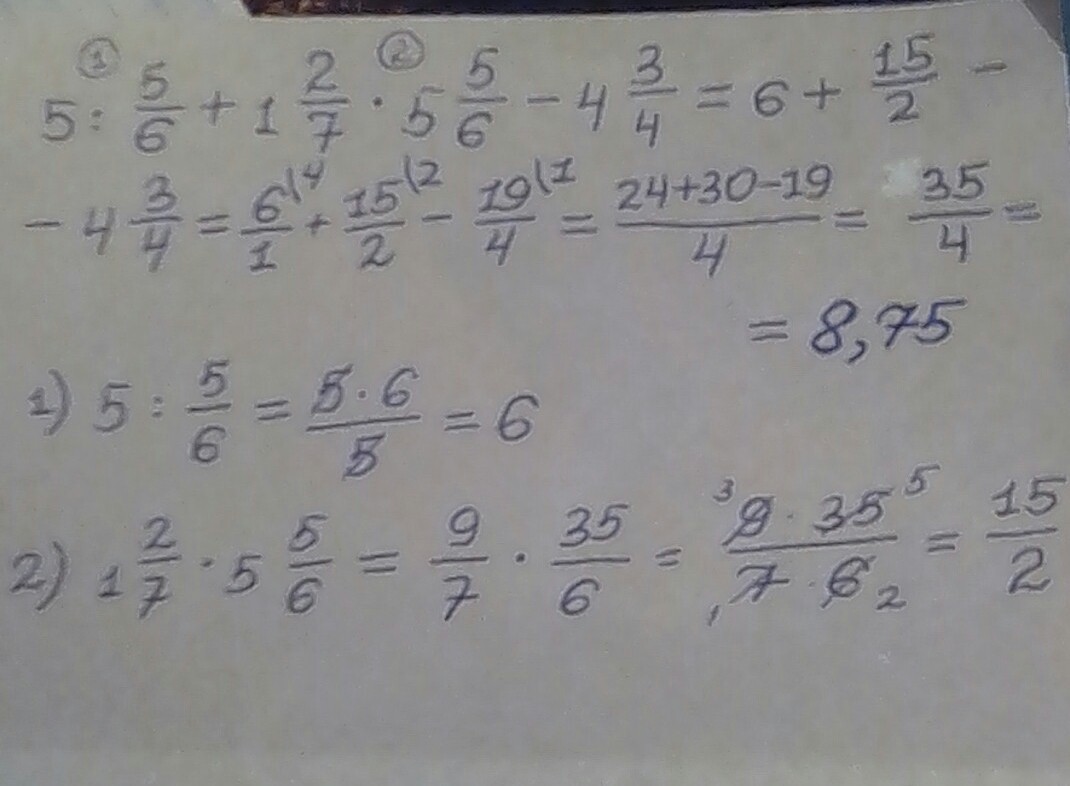 ① ②
5 : 5/6 + 1 2/7 · 5 5/6 − 4 3/4 = 6 + 15/2 −
− 4 3/4 = 6/1 \4 + 15/2 \2 − 19/4 \1 = (24+30−19)/4 = 35/4 =
= 8,75
1) 5 : 5/6 = (5 · 6)/5 = 6
2) 1 2/7 · 5 5/6 = 9/7 · 35/6 = (³9 · 35⁵)/(₁7 · 6₂) = 15/2